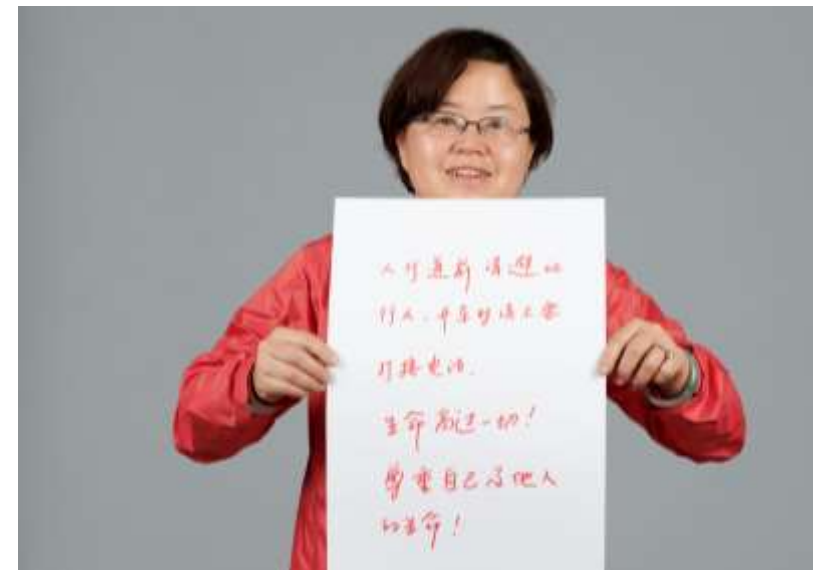 人行道前请避让
行人，开车时请不要
打接电话．
生命高过一切！
尊重自己及他人
的生命！